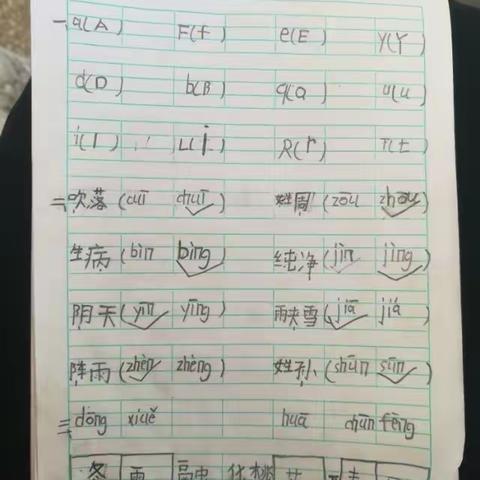 一 a(A) F(f) e(E) y(Y)
d(D) b(B) q(Q) u(u)
i(I) L(i R(r) T(t)
二 吹落(cuī chuī) 姓周(zōu zhōu)
生病(bìn bìng) 纯净(jìn jìng)
阴天(yīn yīng) 雨夹雪(jiā jiá)
阵雨(zhèn zhèng) 姓孙(shūn sūn)
三 dōng xiuě huā chūn fēng
冬 雨 花